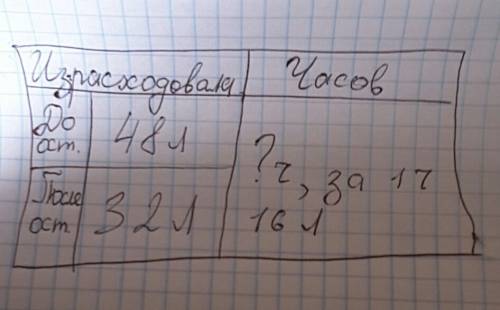 Израсходовала Часов
До
ост. 48 л
?ч, за 1ч
16 л
После
ост. 32 л